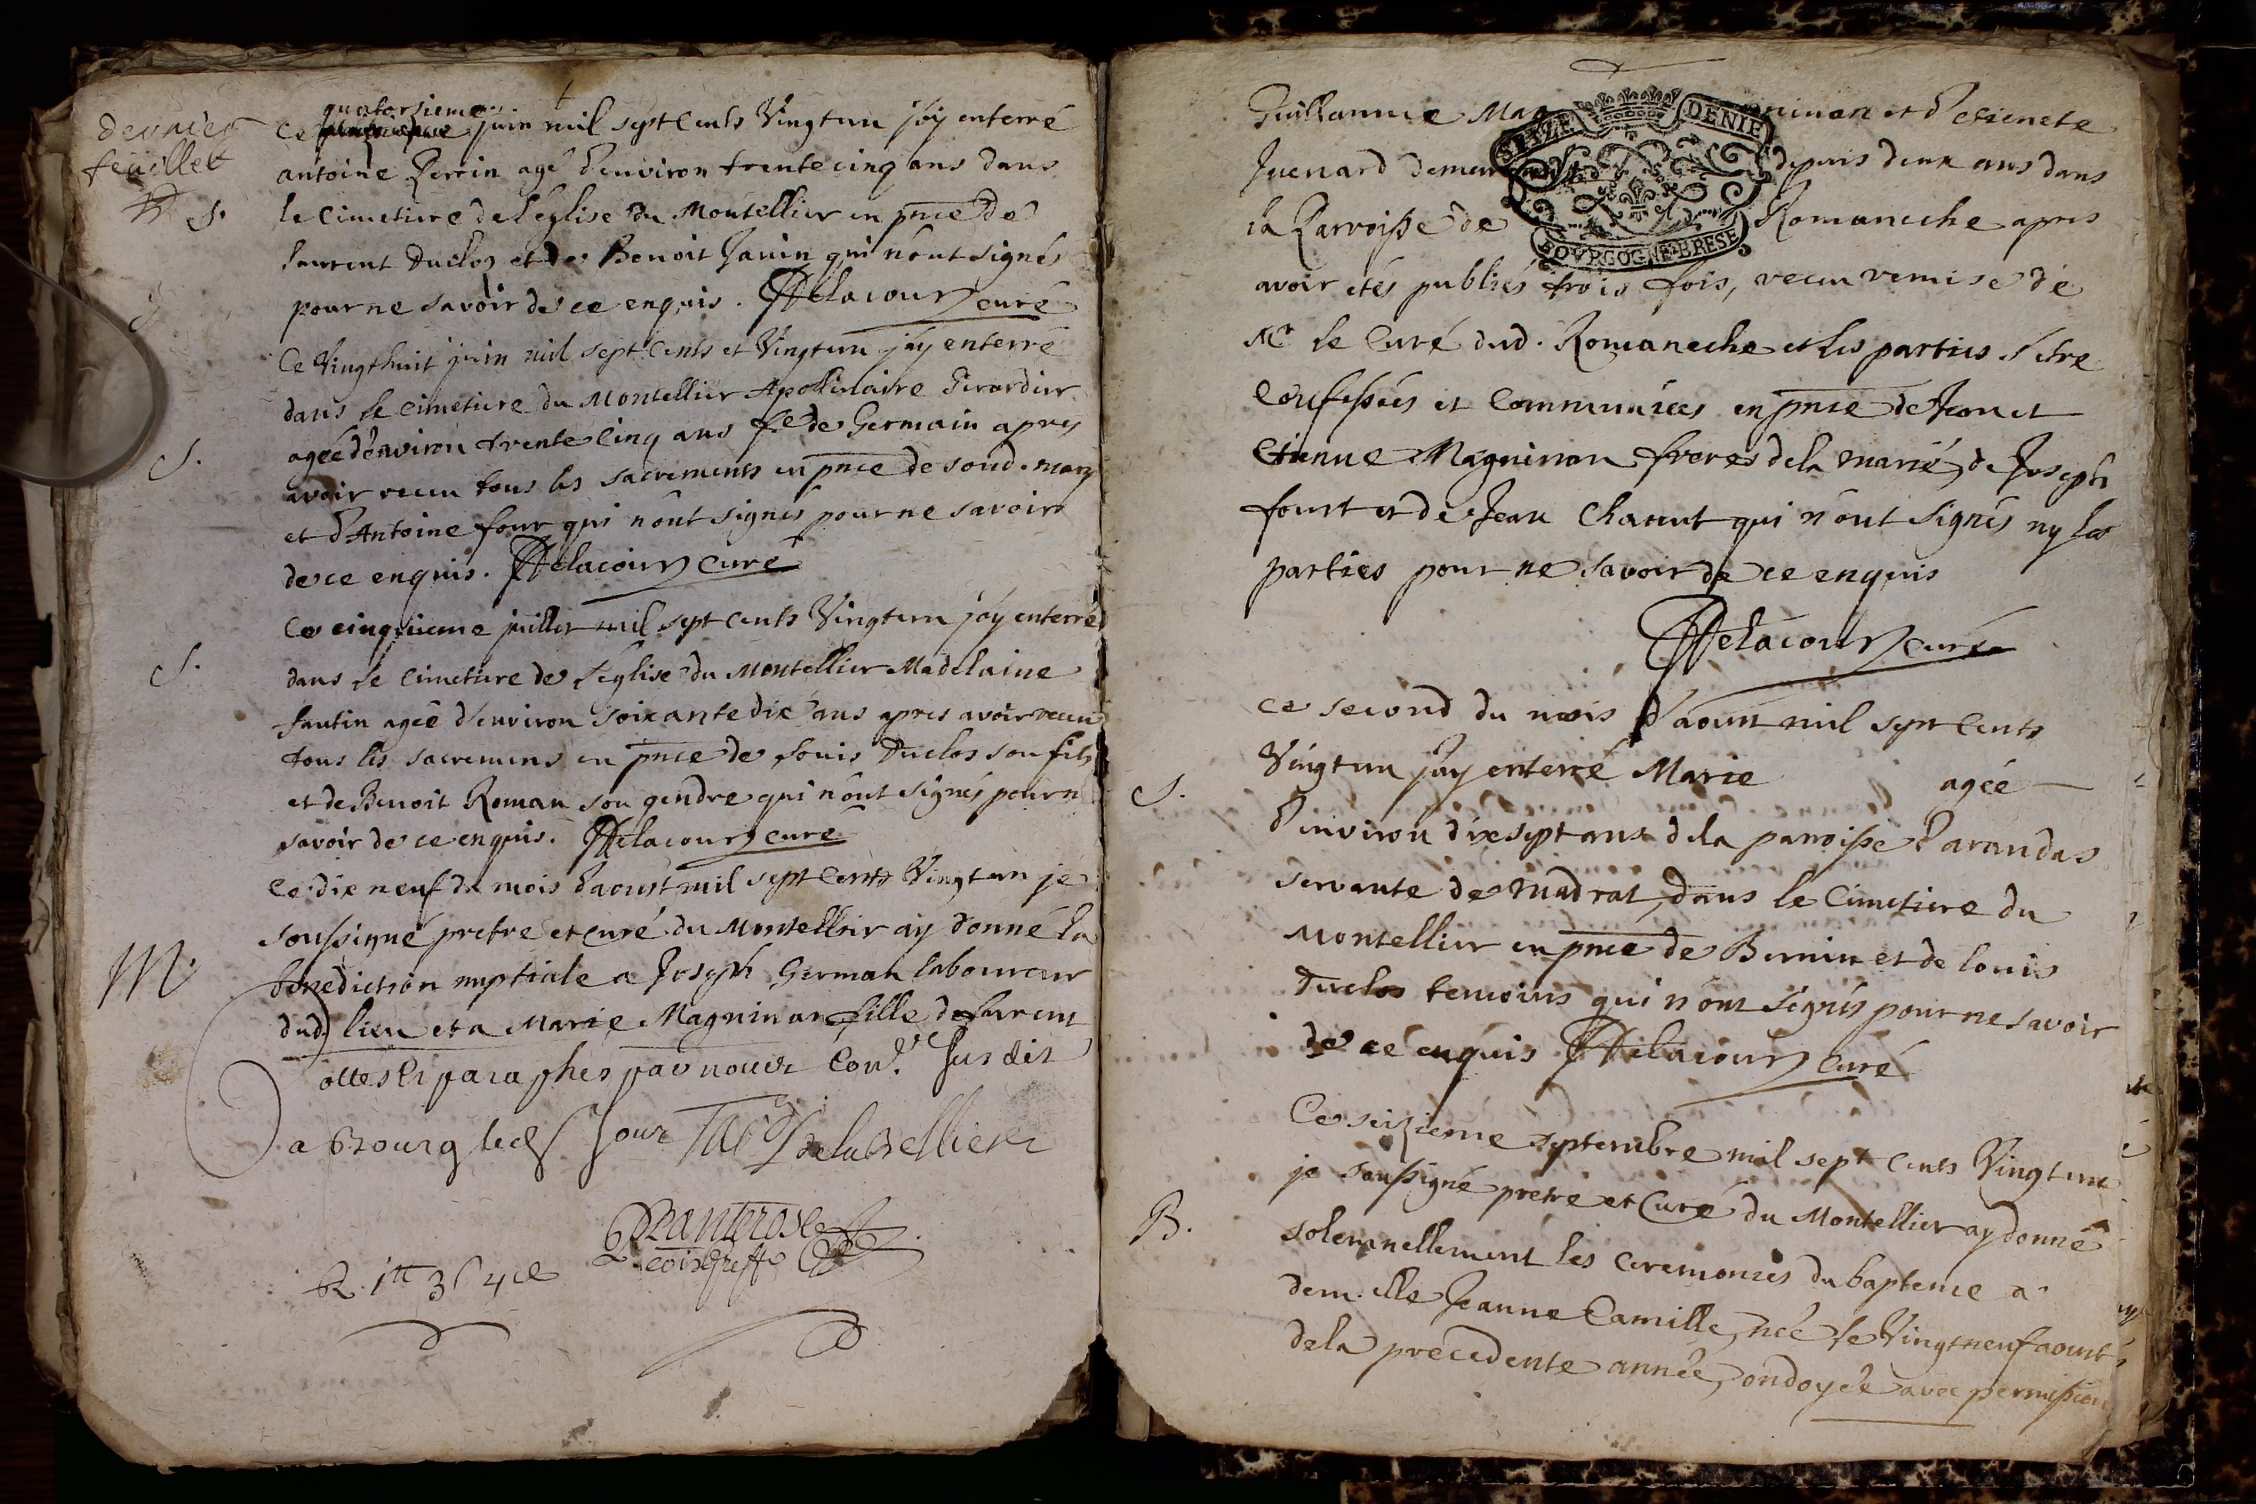 dernier
feuillet
S.
quatorsieme
Ce juin mil sept Cents Vingtun j'ay enterré
antoine Perrin agé d'environ trente cinq ans dans
le Cimetiere de l'église du Montellier en pnce de
Laurent Duclos et de Benoit Janin qui n'ont signés
pour ne savoir de ce enquis. Delacour curé
S.
Ce Vingthuit juin mil sept Cents et Vingtun j'ay enterré
dans le cimetiere du Montellier Apollinaire Girardier
agée d'environ trente Cinq ans fe de Germain apres
avoir receu tous les sacrements en pnce de soud. mary
et d'Antoine four qui n'ont signés pour ne savoir
de ce enquis. Delacour Curé
S.
Ce cinquieme juillet mil sept cents Vingtun j'ay enterré
dans le Cimetiere de l'église du Montellier Madelaine
fautin agée d'environ soixante dix ans apres avoir receu
tous les sacremens en pnce de Louis Duclos son fils
et de Benoit Roman son gendre qui n'ont signés pour n
savoir de ce enquis. Delacour curé
M.
Ce dix neuf du mois d'aoust mil sept Cents Vingtun je
soussigné pretre et curé du Montellier ay donné la
benediction nuptiale a Joseph German laboureur
dud. lieu et a Marie Magninan fille de Laurent
cottes et paraphes par nouz Con.r Sus dit
a Bourg led. Jour
R. 1tt 3s 4d
SEIZE DENIE
BOVRGOGNE BRESE
Guillaume Mag ninan et d'etienete
Juenard demeurant depuis deux ans dans
la Parroisse de Romaneche apres
avoir étés publiés trois fois, receu remise de
Mr le Curé dud. Romaneche et les parties s'etre
Confessées et Communiées en pnce de Jean et
Etienne Magninan freres de la marié, de Joseph
fourt et de Jean Charut qui n'ont signés ny les
parties pour ne savoir de ce enquis
Delacour curé
S.
ce second du mois d'aoust mil sept cents
Vingtun j'ay enterré Marie agée
d'environ dix sept ans de la parroisse d'arandas
servante de Madrat, dans le Cimetiere du
Montellier en pnce de Bernin et de Louis
Duclos temoins qui n'ont signés pour ne savoir
de ce enquis Delacour Curé
B.
Ce seizieme septembre mil sept cents Vingtun
je soussigné pretre et Curé du Montellier ay donné
solemnellement les ceremonies du bapteme a
dem.elle Jeanne Camille, née le Vingtneuf aoust
de la precedente année, ondoyée avec permission